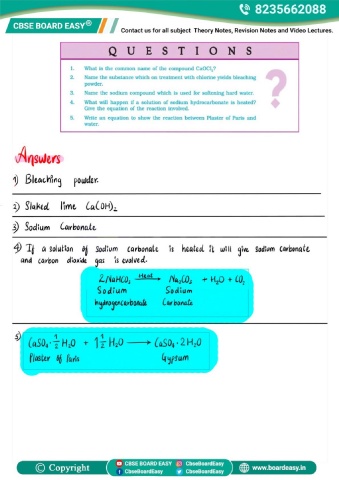 8235662088
CBSE BOARD EASY®
Contact us for all subject Theory Notes, Revision Notes and Video Lectures.
QUESTIONS
1. What is the common name of the compound CaOCl₂?
2. Name the substance which on treatment with chlorine yields bleaching
powder.
3. Name the sodium compound which is used for softening hard water.
4. What will happen if a solution of sodium hydrocarbonate is heated?
Give the equation of the reaction involved.
5. Write an equation to show the reaction between Plaster of Paris and
water.
?
Answers
1) Bleaching powder.
2) Slaked lime Ca(OH)₂
3) Sodium Carbonate
4) If a solution of sodium carbonate is heated it will give sodium carbonate
and carbon dioxide gas is evolved.
2NaHCO₃ Heat → Na₂CO₃ + H₂O + CO₂
Sodium Sodium
hydrogencarbonate Carbonate
5)
CaSO₄·½ H₂O + 1½ H₂O → CaSO₄·2H₂O
Plaster of Paris Gypsum
© Copyright
CBSE BOARD EASY CbseBoardEasy
CbseBoardEasy CbseBoardEasy
www.boardeasy.in